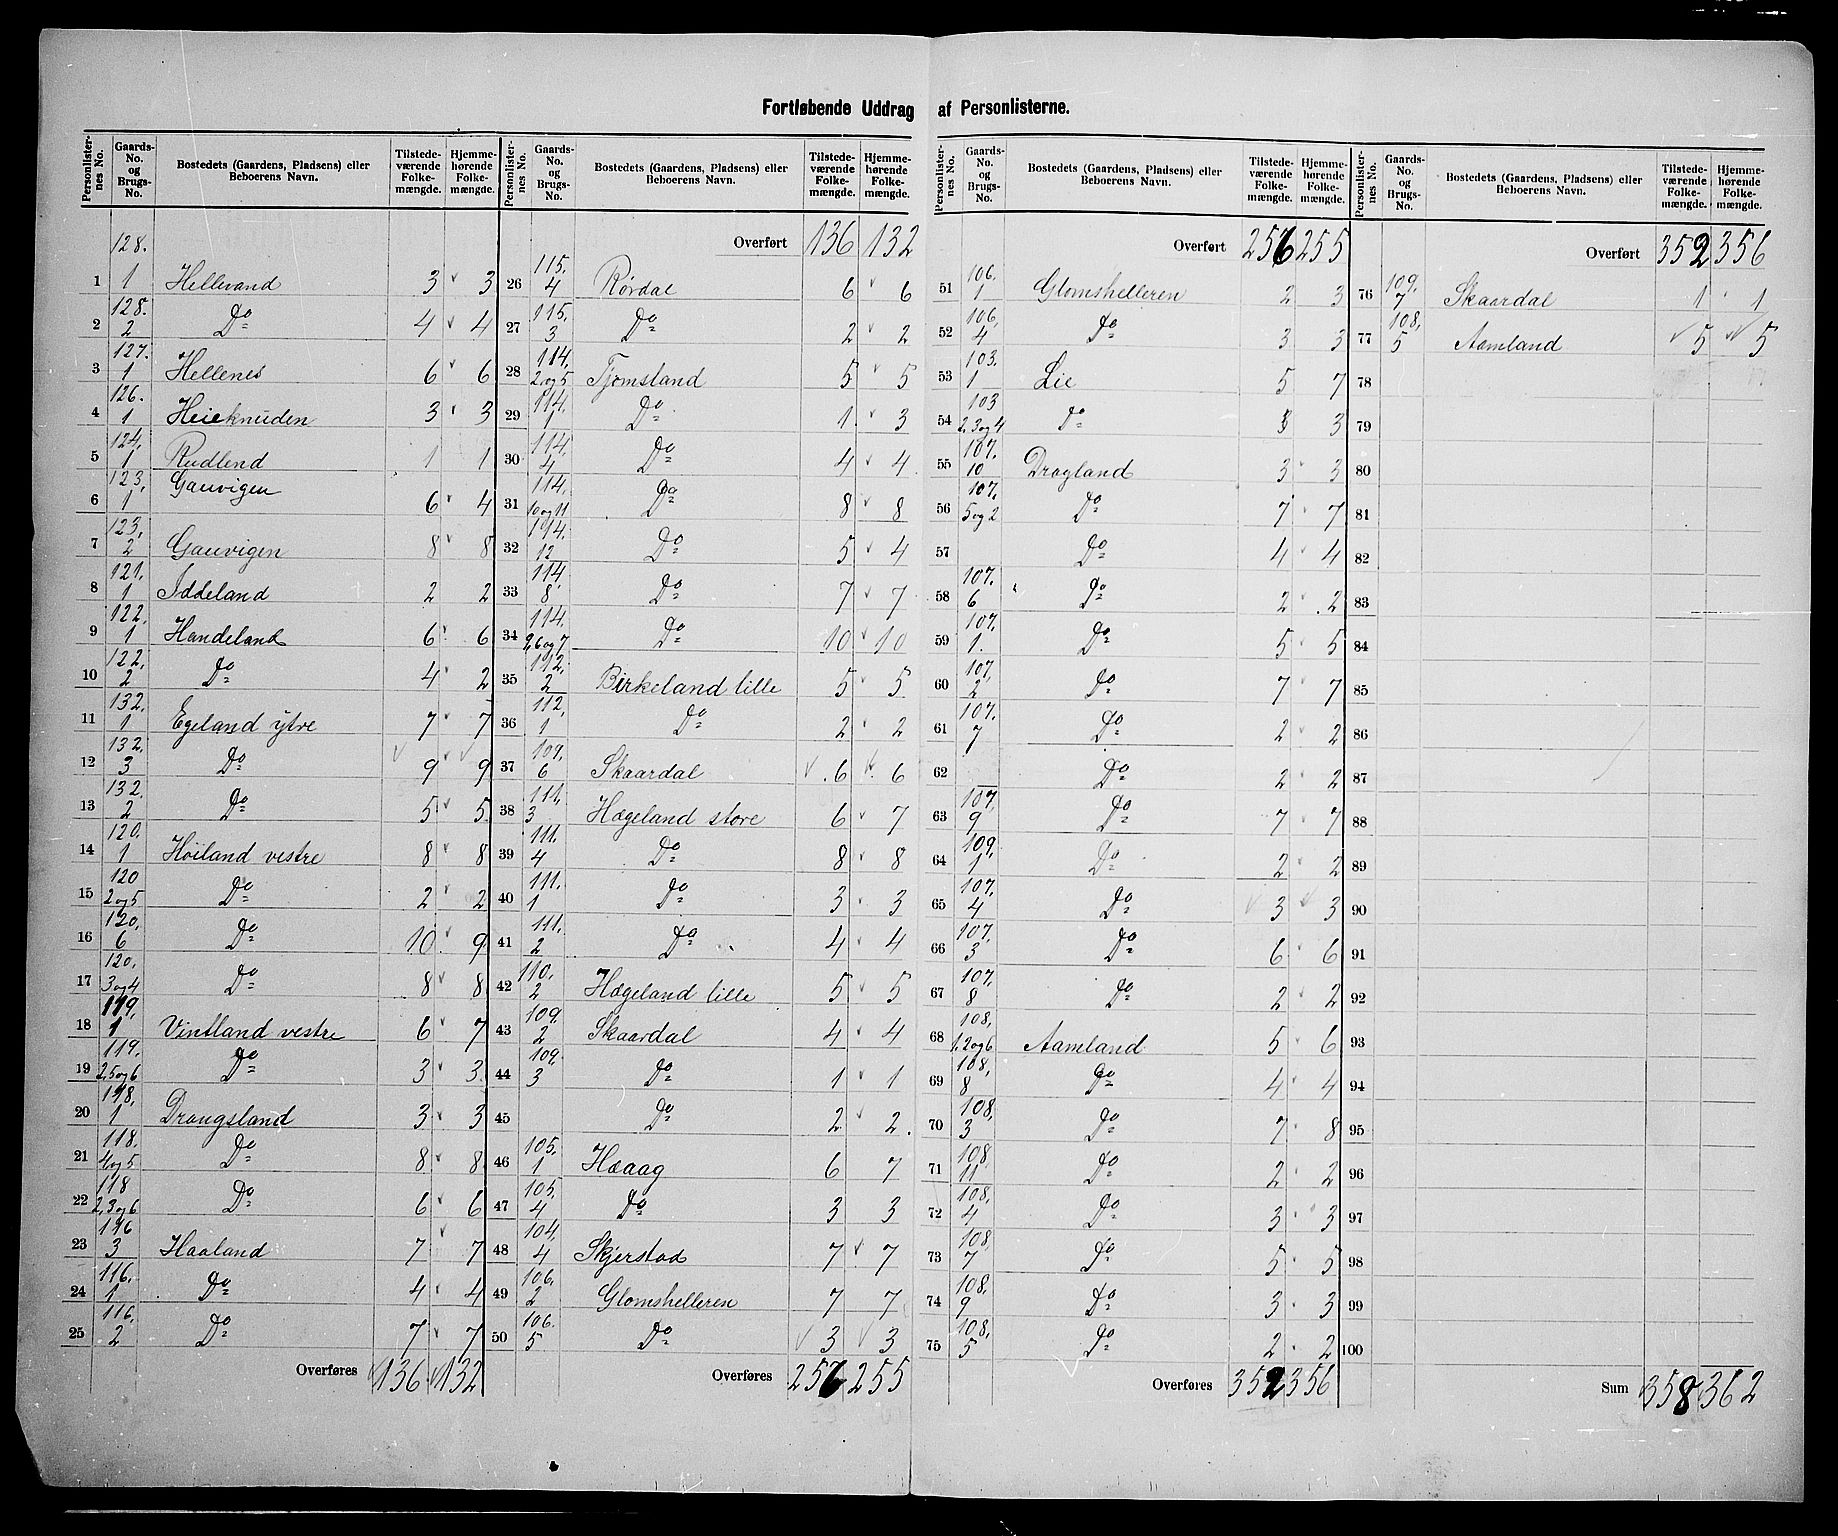 Fortløbende Uddrag af Personlisterne.
Personlister-nes No. | Gaards-No. og Brugs-No. | Bostedets (Gaardens, Pladsens) eller Beboerens Navn. | Tilstede-værende Folke-mængde. | Hjemme-hørende Folke-mængde.
1 128. 1 Hellevand 3 3
2 128. 2 Do 4 4
3 127. 1 Hellenes 6 6
4 126. 1 Heieknuden 3 3
5 124, 1 Rudlend 1 1
6 123, 1 Gauvigen 6 4
7 123, 2 Gauvigen 8 8
8 121. 1 Iddeland 2 2
9 122. 1 Handeland 6 6
10 122, 2 Do 4 2
11 132. 1 Egeland ytre 7 7
12 132, 3 Do 9 9
13 132. 2 Do 5 5
14 120. 1 Høiland vestre 8 8
15 120 2og5 Do 2 2
16 120, 6 Do 10 9
17 120. 3og4 Do 8 8
18 119, 1 Vintland vestre 6 7
19 119. 2,5og6 Do 3 3
20 118, 1 Drangsland 3 3
21 118. 4og5 Do 8 8
22 118 2,3og6 Do 6 6
23 116 3 Haaland 7 7
24 116. 1 Do 4 4
25 116. 2 Do 7 7
Overføres 136 132
Personlister-nes No. | Gaards-No. og Brugs-No. | Bostedets (Gaardens, Pladsens) eller Beboerens Navn. | Tilstede-værende Folke-mængde. | Hjemme-hørende Folke-mængde.
Overført 136 132
26 115. 4 Rørdal 6 6
27 115, 3 Do 2 2
28 114, 2og5 Tjomsland 5 5
29 114, 1 Do 1 3
30 114, 4 Do 4 4
31 114. 10og11 Do 8 8
32 114. 12 Do 5 4
33 114, 8 Do 7 7
34 114. 9,6og7 Do 10 10
35 112, 2 Birkeland lille 5 5
36 112. 1 Do 2 2
37 109. 6 Skaardal 6 6
38 111. 3 Hægeland store 6 7
39 111. 4 Do 8 8
40 111. 1 Do 3 3
41 111. 2 Do 4 4
42 110. 2 Hægeland lille 5 5
43 109. 2 Skaardal 4 4
44 109. 3 Do 1 1
45 Do 2 2
46 105. 1 Hæaag 6 7
47 105, 4 Do 3 3
48 104, 4 Skjerstad 7 7
49 106. 2 Glomshelleren 7 7
50 106. 5 Do 3 3
Overføres 256 255
Personlister-nes No. | Gaards-No. og Brugs-No. | Bostedets (Gaardens, Pladsens) eller Beboerens Navn. | Tilstede-værende Folke-mængde. | Hjemme-hørende Folke-mængde.
Overført 256 255
51 106. 1 Glomshelleren 2 3
52 106, 4 Do 3 3
53 103. 1 Lie 5 7
54 103 2,3og4 Do 3 3
55 107. 10 Dragland 3 3
56 107. 5og2 Do 7 7
57 Do 4 4
58 107. 6 Do 2 2
59 107. 1. Do 5 5
60 107, 2 Do 7 7
61 107. 7 Do 2 2
62 Do 2 2
63 107, 9 Do 7 7
64 109, 1 Do 2 2
65 107. 4 Do 3 3
66 107. 3 Do 6 6
67 107, 8 Do 2 2
68 108, 1,2og6 Aamland 5 6
69 108, 8 Do 4 4
70 108, 3 Do 7 8
71 108. 11 Do 2 2
72 108. 4 Do 3 3
73 108, 7 Do 5 5
74 108, 9 Do 3 3
75 108, 5 Do 2 2
Overføres 352 356
Personlister-nes No. | Gaards-No. og Brugs-No. | Bostedets (Gaardens, Pladsens) eller Beboerens Navn. | Tilstede-værende Folke-mængde. | Hjemme-hørende Folke-mængde.
Overført 352 356
76 109, 7 Skaardal 1 1
77 108, 5 Aamland 5 5
78
79
80
81
82
83
84
85
86
87
88
89
90
91
92
93
94
95
96
97
98
99
100
Sum 358 362